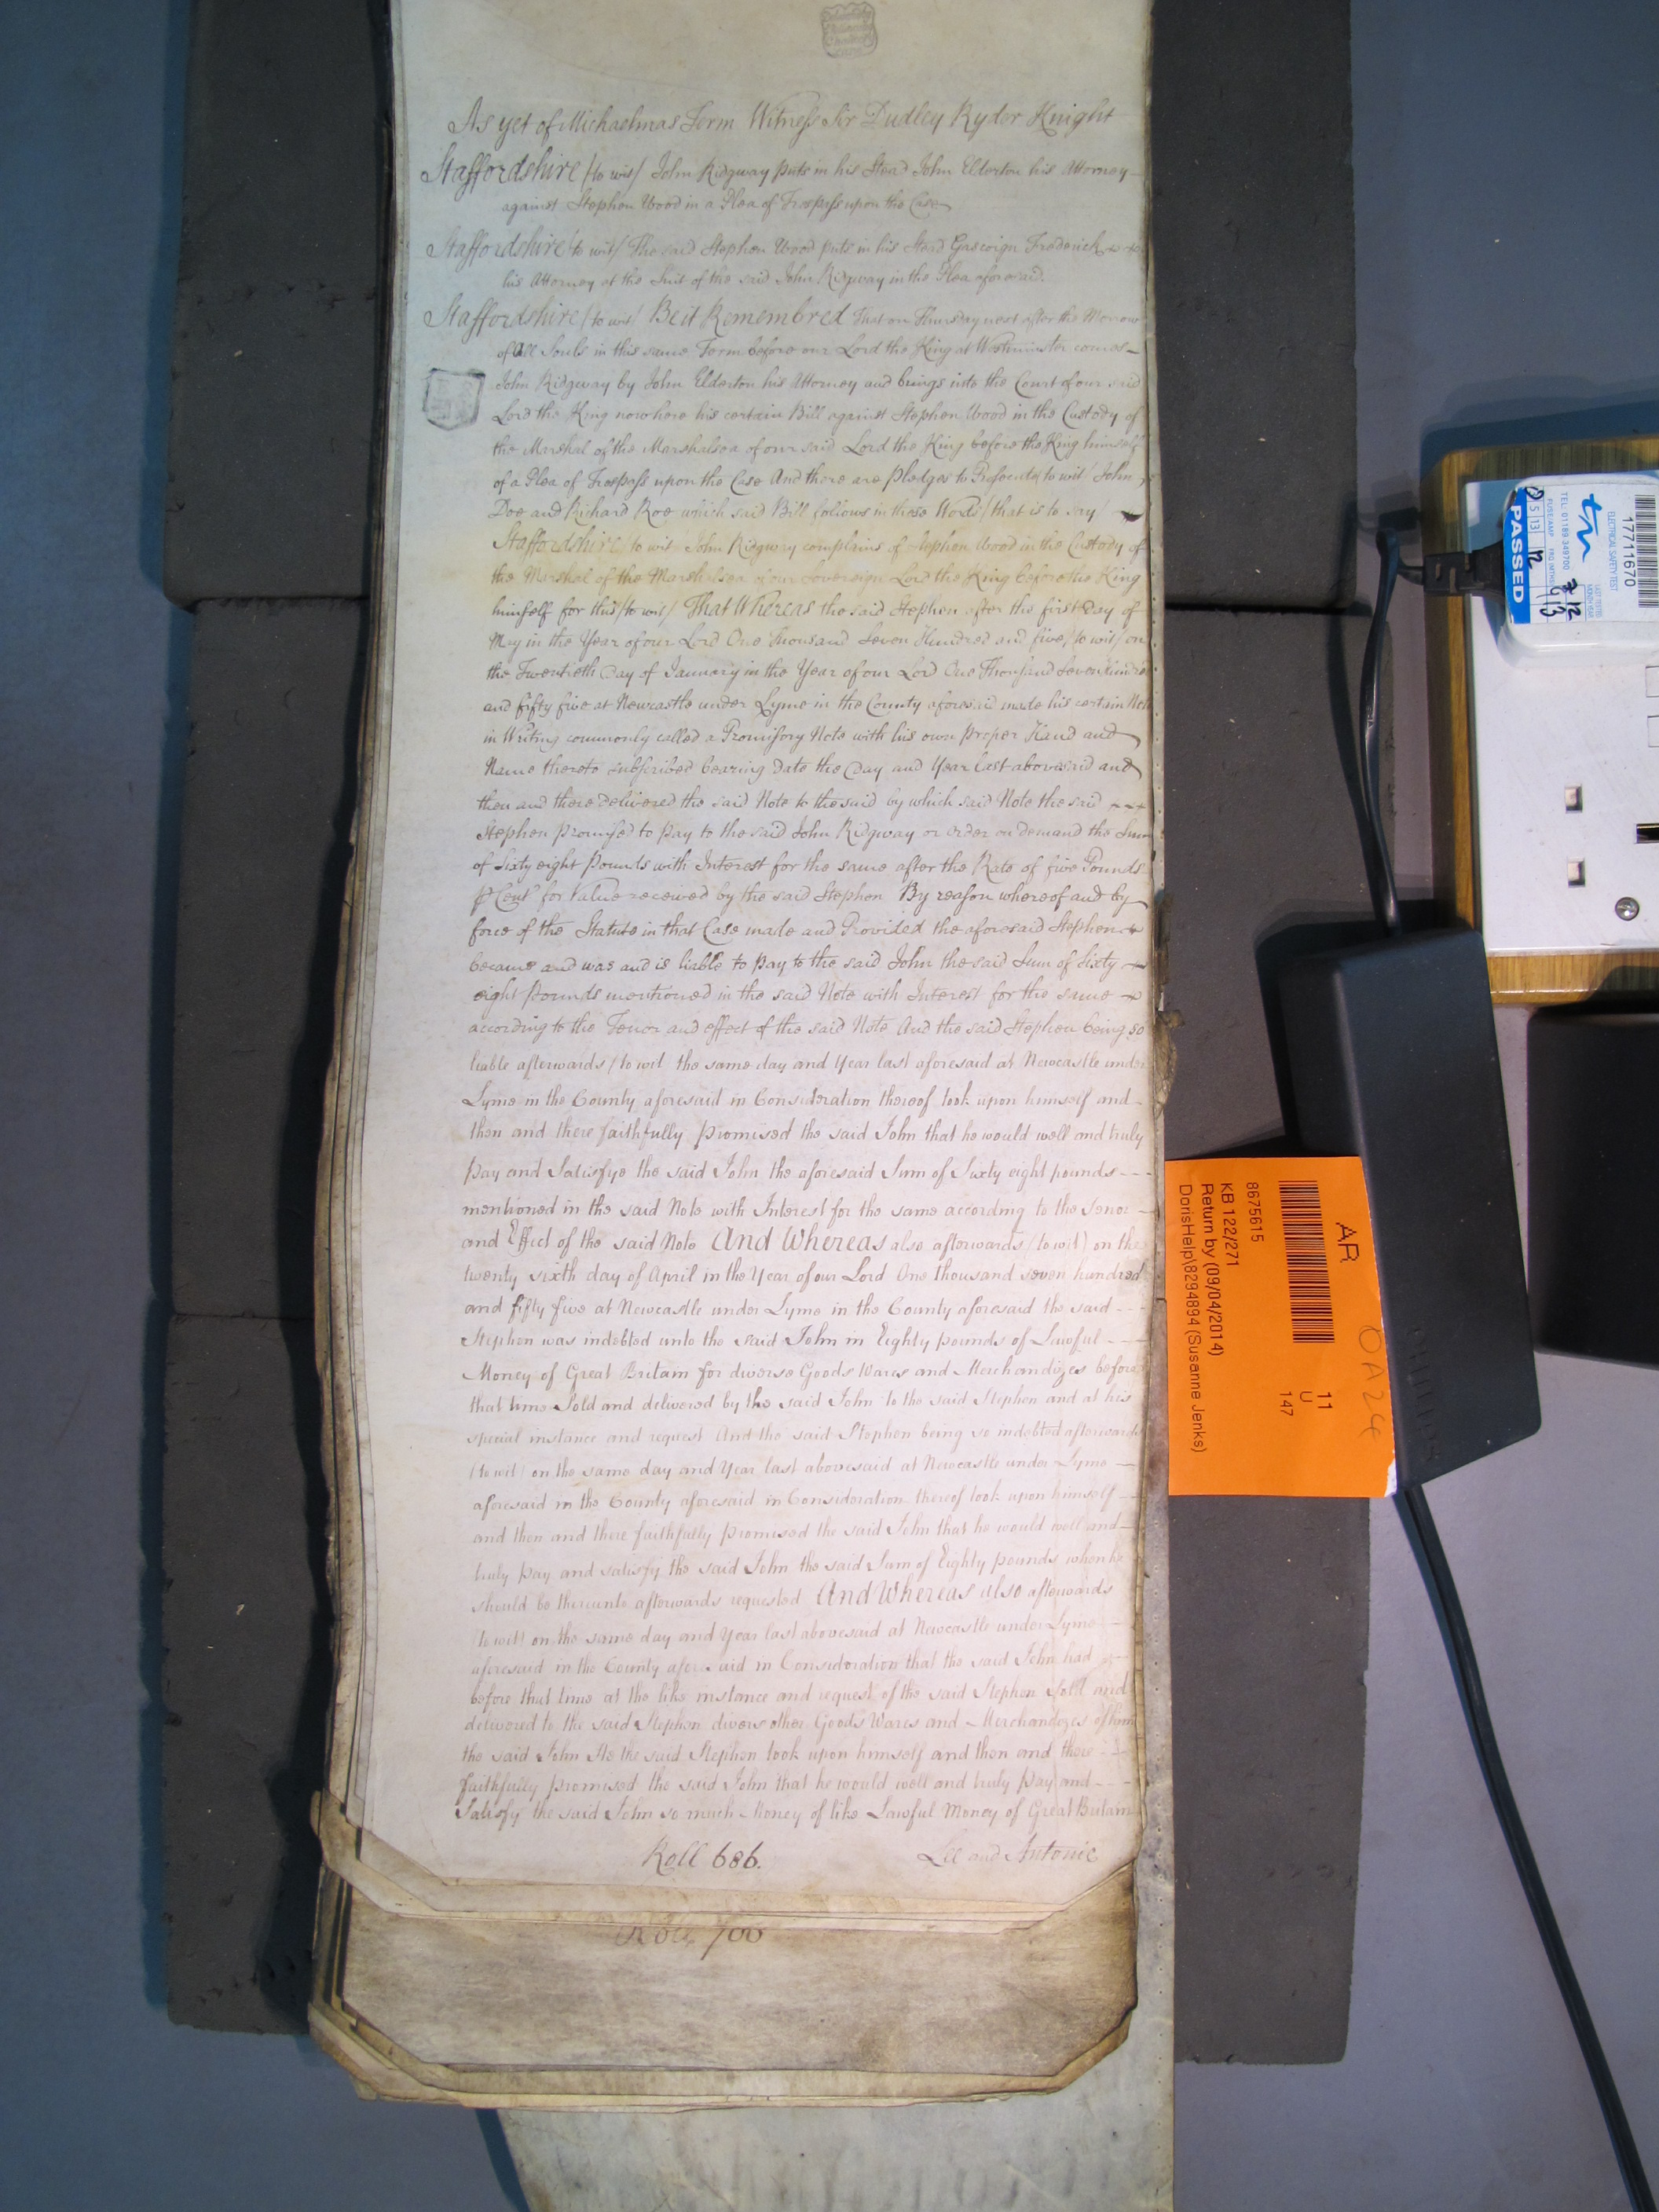 As yet of Michaelmas Term Witness Sir Dudley Ryder Knight
Staffordshire (to wit) John Ridgway puts in his Stead John Elderton his Attorney
against Stephen Wood in a Plea of Trespass upon the Case
Staffordshire (to wit) The said Stephen Wood puts in his Stead Gascoign Frederick
his Attorney at the Suit of the said John Ridgway in the Plea aforesaid.
Staffordshire (to wit) Be it Remembred that on Thursday next after the Morrow
of All Souls in this same Term before our Lord the King at Westminster comes
John Ridgway by John Elderton his Attorney and brings into the Court of our said
Lord the King now here his certain Bill against Stephen Wood in the Custody of
the Marshal of the Marshalsea of our said Lord the King before the King himself
of a Plea of Trespass upon the Case And there are pledges to Prosecute to wit John
Doe and Richard Roe which said Bill follows in these Words (that is to say)
Staffordshire (to wit) John Ridgway complains of Stephen Wood in the Custody of
the Marshal of the Marshalsea of our Sovereign Lord the King before the King
himself for this (to wit) That Whereas the said Stephen after the first Day of
May in the Year of our Lord One thousand Seven Hundred and five (to wit) on
the Twentieth Day of January in the Year of our Lord One Thousand Seven Hundred
and fifty five at Newcastle under Lyme in the County aforesaid made his certain Note
in Writing commonly called a Promissory Note with his own proper Hand and
Name thereto subscribed bearing date the Day and Year last abovesaid and
then and there delivered the said Note to the said by which said Note the said
Stephen promised to pay to the said John Ridgway or order on demand the Sum
of Sixty eight pounds with Interest for the same after the Rate of five Pounds
℘ Cent for Value received by the said Stephen By reason whereof and by
force of the Statute in that Case made and Provided the aforesaid Stephen
became and was and is liable to pay to the said John the said Sum of Sixty
eight pounds mentioned in the said Note with Interest for the same
according to the Tenor and effect of the said Note And the said Stephen being so
liable afterwards (to wit the same day and Year last aforesaid at Newcastle under
Lyme in the County aforesaid in Consideration thereof took upon himself and
then and there faithfully promised the said John that he would well and truly
pay and Satisfye the said John the aforesaid Sum of Sixty eight pounds
mentioned in the said Note with Interest for the same according to the Tenor
and Effect of the said Note And Whereas also afterwards (to wit) on the
twenty sixth day of April in the Year of our Lord One thousand seven hundred
and fifty five at Newcastle under Lyme in the County aforesaid the said
Stephen was indebted unto the said John in Eighty pounds of Lawful
Money of Great Britain for diverse Goods Wares and Merchandizes before
that time Sold and delivered by the said John to the said Stephen and at his
special instance and request And the said Stephen being so indebted afterwards
(to wit) on the same day and Year last abovesaid at Newcastle under Lyme
aforesaid in the County aforesaid in Consideration thereof took upon himself
and then and there faithfully promised the said John that he would well and
truly pay and satisfy the said John the said Sum of Eighty pounds when he
should be thereunto afterwards requested And Whereas also afterwards
(to wit) on the same day and Year last abovesaid at Newcastle under Lyme
aforesaid in the County aforesaid in Consideration that the said John had
before that time at the like instance and request of the said Stephen Sold and
delivered to the said Stephen divers other Goods Wares and Merchandizes of him
the said John He the said Stephen took upon himself and then and there
faithfully promised the said John that he would well and truly pay and
Satisfy the said John so much Money of like Lawful Money of Great Britain
Roll 686. Lee and Antonie
Roll 700
AR
11
U
147
8675615
KB 122/271
Return by (09/04/2014)
DorisHelp\8294894 (Susanne Jenks)
OA24
PHILIPS
17711670
ELECTRICAL SAFETY TEST
PASSED